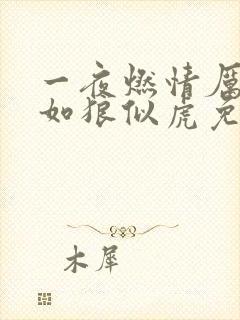 一夜燃情厉
如狼似虎免
木犀